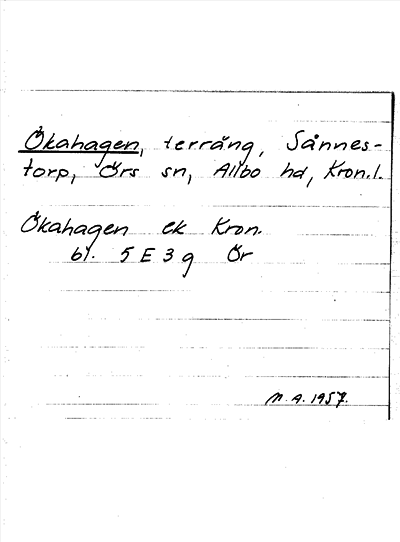 Ökahagen, terräng, Sånnes-
torp, Örs sn, Allbo hd, Kron. l.
Ökahagen ek Kron.
bl. 5 E 3 g Ör
M. A. 1957.